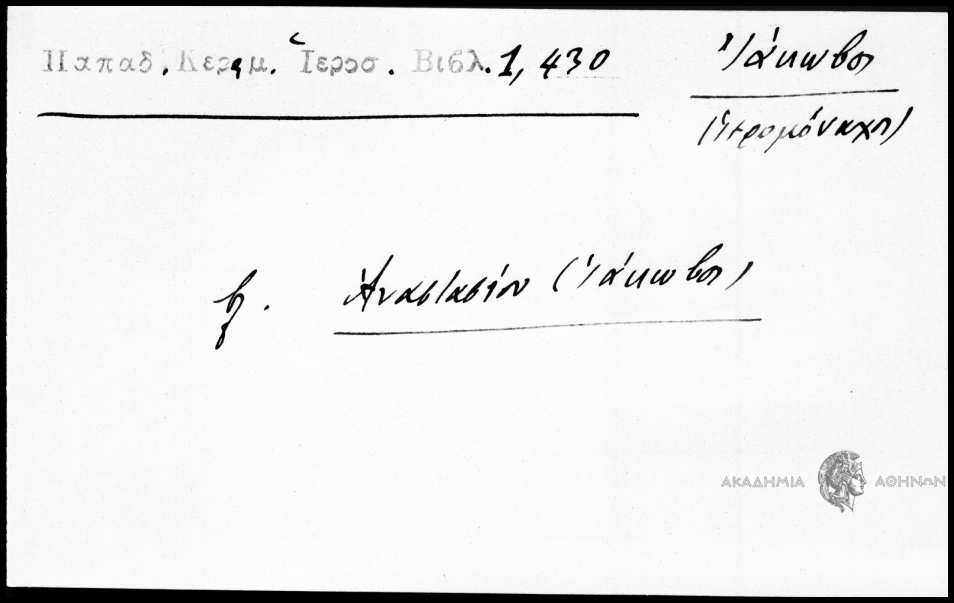 Παπαδ. Κεραμ. Ἱεροσ. Βιβλ. 1, 430
Ἰάκωβος
(ἱερομόναχος)
βλ. Ἀναστασίου (Ἰάκωβος)
ΑΚΑΔΗΜΙΑ ΑΘΗΝΩΝ